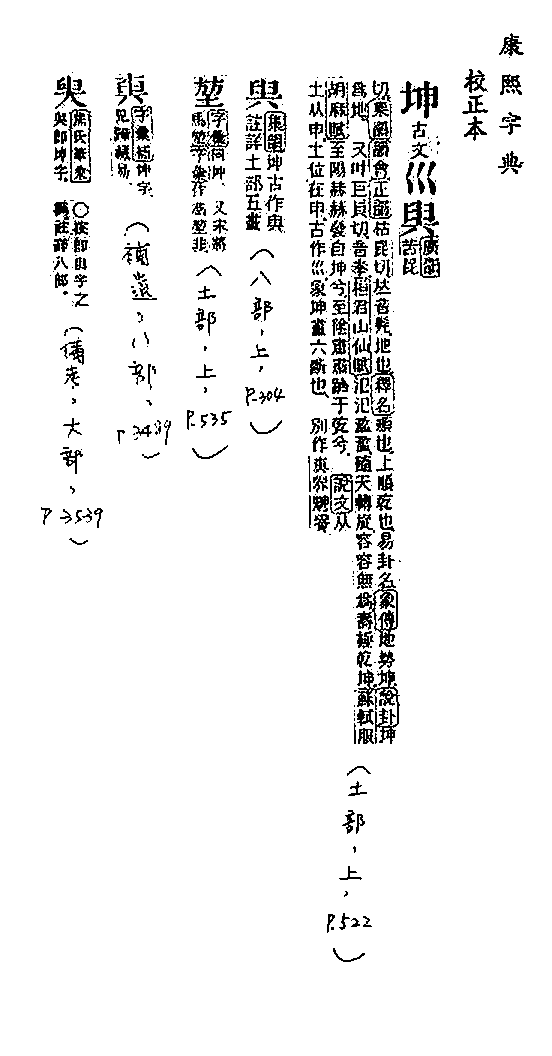 康熙字典
校正本
坤 古文 巛 𠔏 廣韻 苦昆
切集韻韻會正韻枯昆切𠀤音髡地也釋名順也上順乾也易卦名象傳地勢坤說卦坤
爲地 又叶巨員切音拳桓君山仙賦氾氾濫濫隨天轉旋容容無爲壽極乾坤蘇軾服
胡麻賦至陽赫赫發自坤兮至隂肅肅躋于乾兮 說文从
土从申土位在申古作巛象坤畫六斷也 別作
集韻坤古作
註詳土部五畫
(八部,上,
P.304)
堃 字彙同坤 又宋將
馬堃字彙作馮堃非
(土部,上,
P.535)
字彙補坤字
見歸藏易
(補遺,八部,
P.3489)
○按卽𠔏字之
譌註詳八部
(備考,大部,
P.3539)
(土部,上,
P.522)